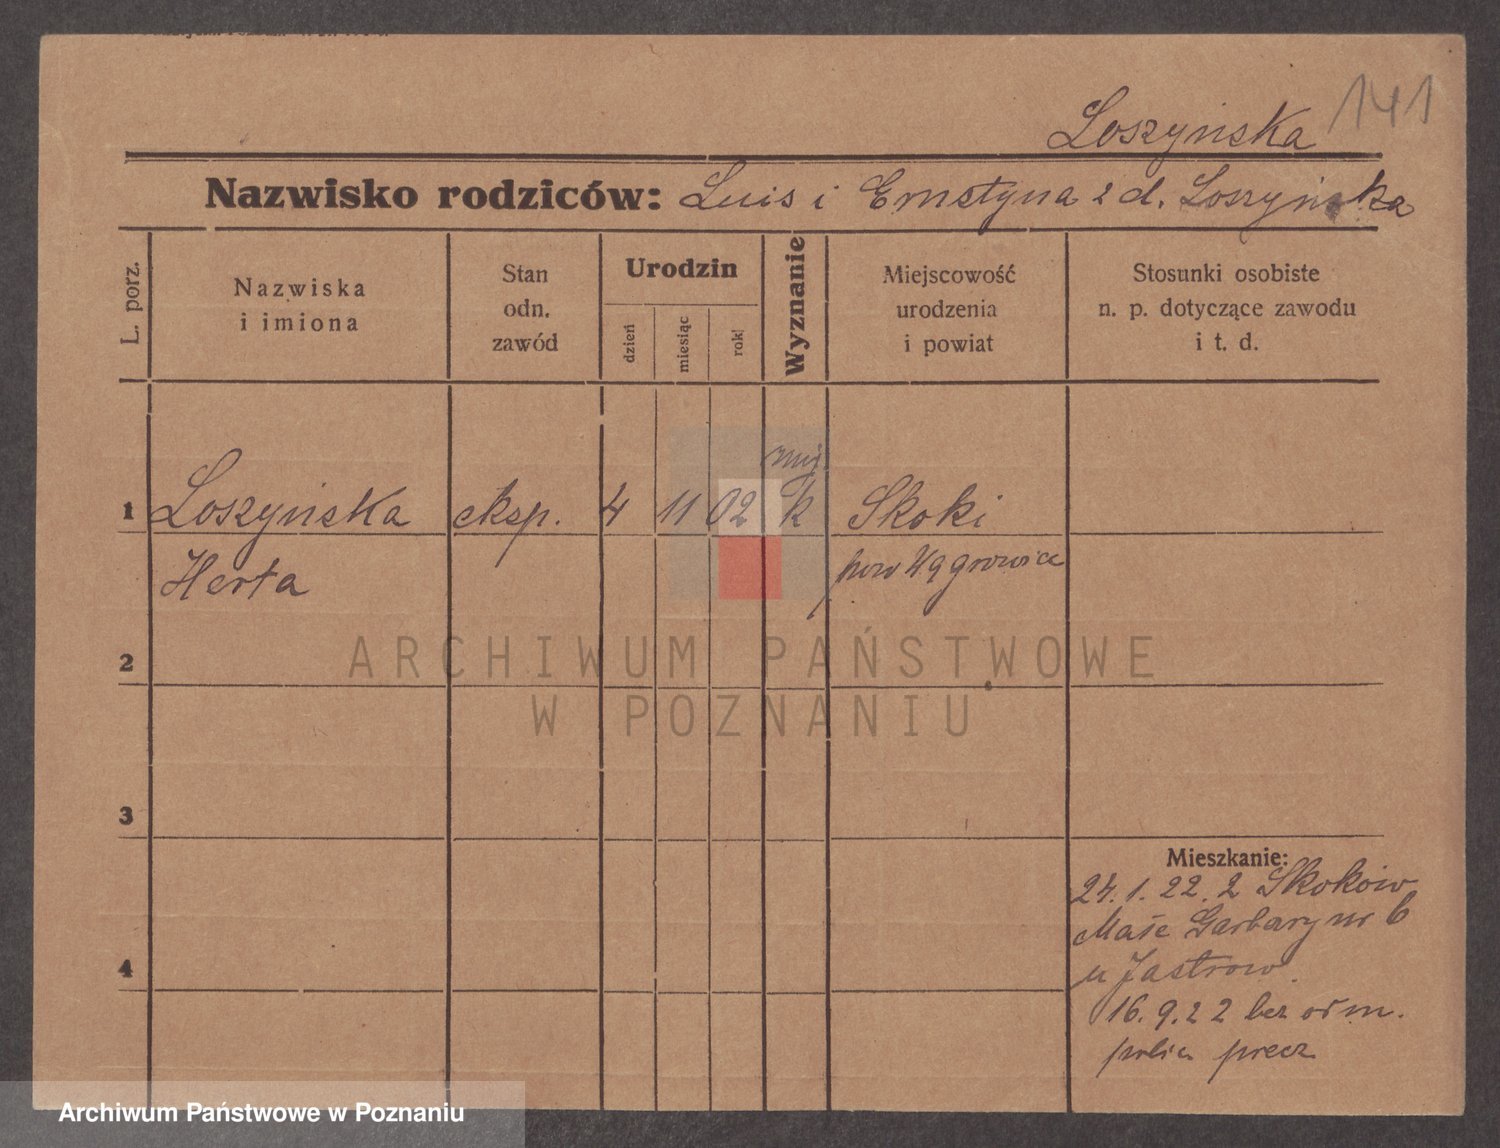 Loszyńska
141
Nazwisko rodziców: Luis i Ernstyna z d. Loszyńska
L. porz.
Nazwiska
i imiona
Stan
odn.
zawód
Urodzin
dzień
miesiąc
rok
Wyznanie
Miejscowość
urodzenia
i powiat
Stosunki osobiste
n. p. dotyczące zawodu
i t. d.
1 Loszyńska eksp. 4 11 02 k Skoki
Herta
pow Wągrowice
2
ARCHIWUM PAŃSTWOWE
W POZNANIU
3
4
Mieszkanie:
24.1.22. z Skoków
Małe Garbary nr 6
u Jastrow
16.9.22 bez odm.
polic. precz
Archiwum Państwowe w Poznaniu